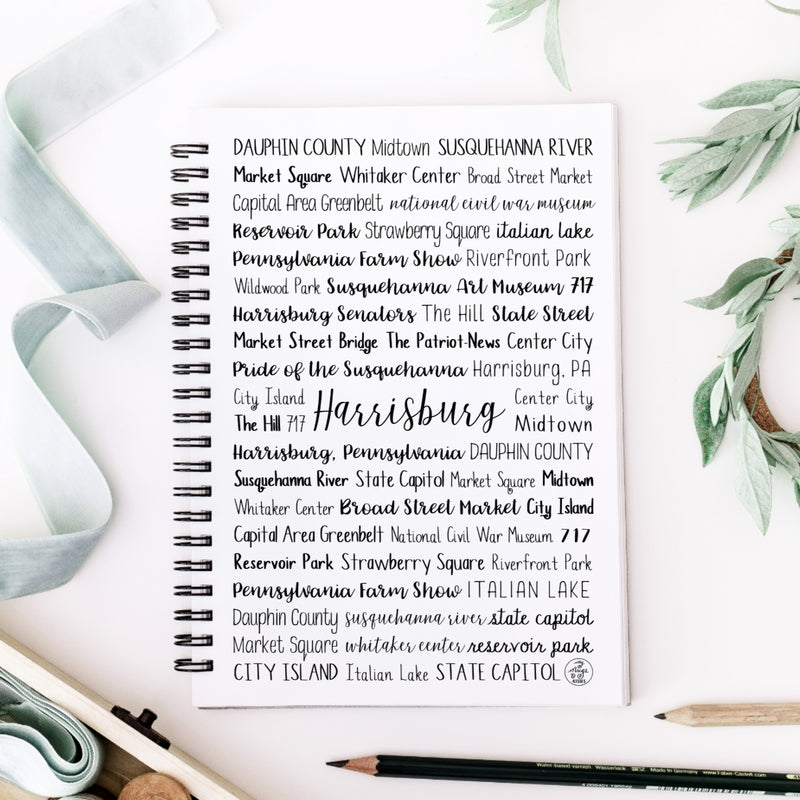 DAUPHIN COUNTY Midtown SUSQUEHANNA RIVER
Market Square Whitaker Center Broad Street Market
Capital Area Greenbelt national civil war museum
Reservoir Park Strawberry Square italian lake
Pennsylvania Farm Show Riverfront Park
Wildwood Park Susquehanna Art Museum 717
Harrisburg Senators The Hill State Street
Market Street Bridge The Patriot-News Center City
Pride of the Susquehanna Harrisburg, PA
City Island Center City
The Hill 717 Harrisburg Midtown
Harrisburg, Pennsylvania DAUPHIN COUNTY
Susquehanna River State Capitol Market Square Midtown
Whitaker Center Broad Street Market City Island
Capital Area Greenbelt National Civil War Museum 717
Reservoir Park Strawberry Square Riverfront Park
Pennsylvania Farm Show ITALIAN LAKE
Dauphin County susquehanna river state capitol
Market Square whitaker center reservoir park
CITY ISLAND Italian Lake STATE CAPITOL
Made in Germany www.Faber-Castell.com